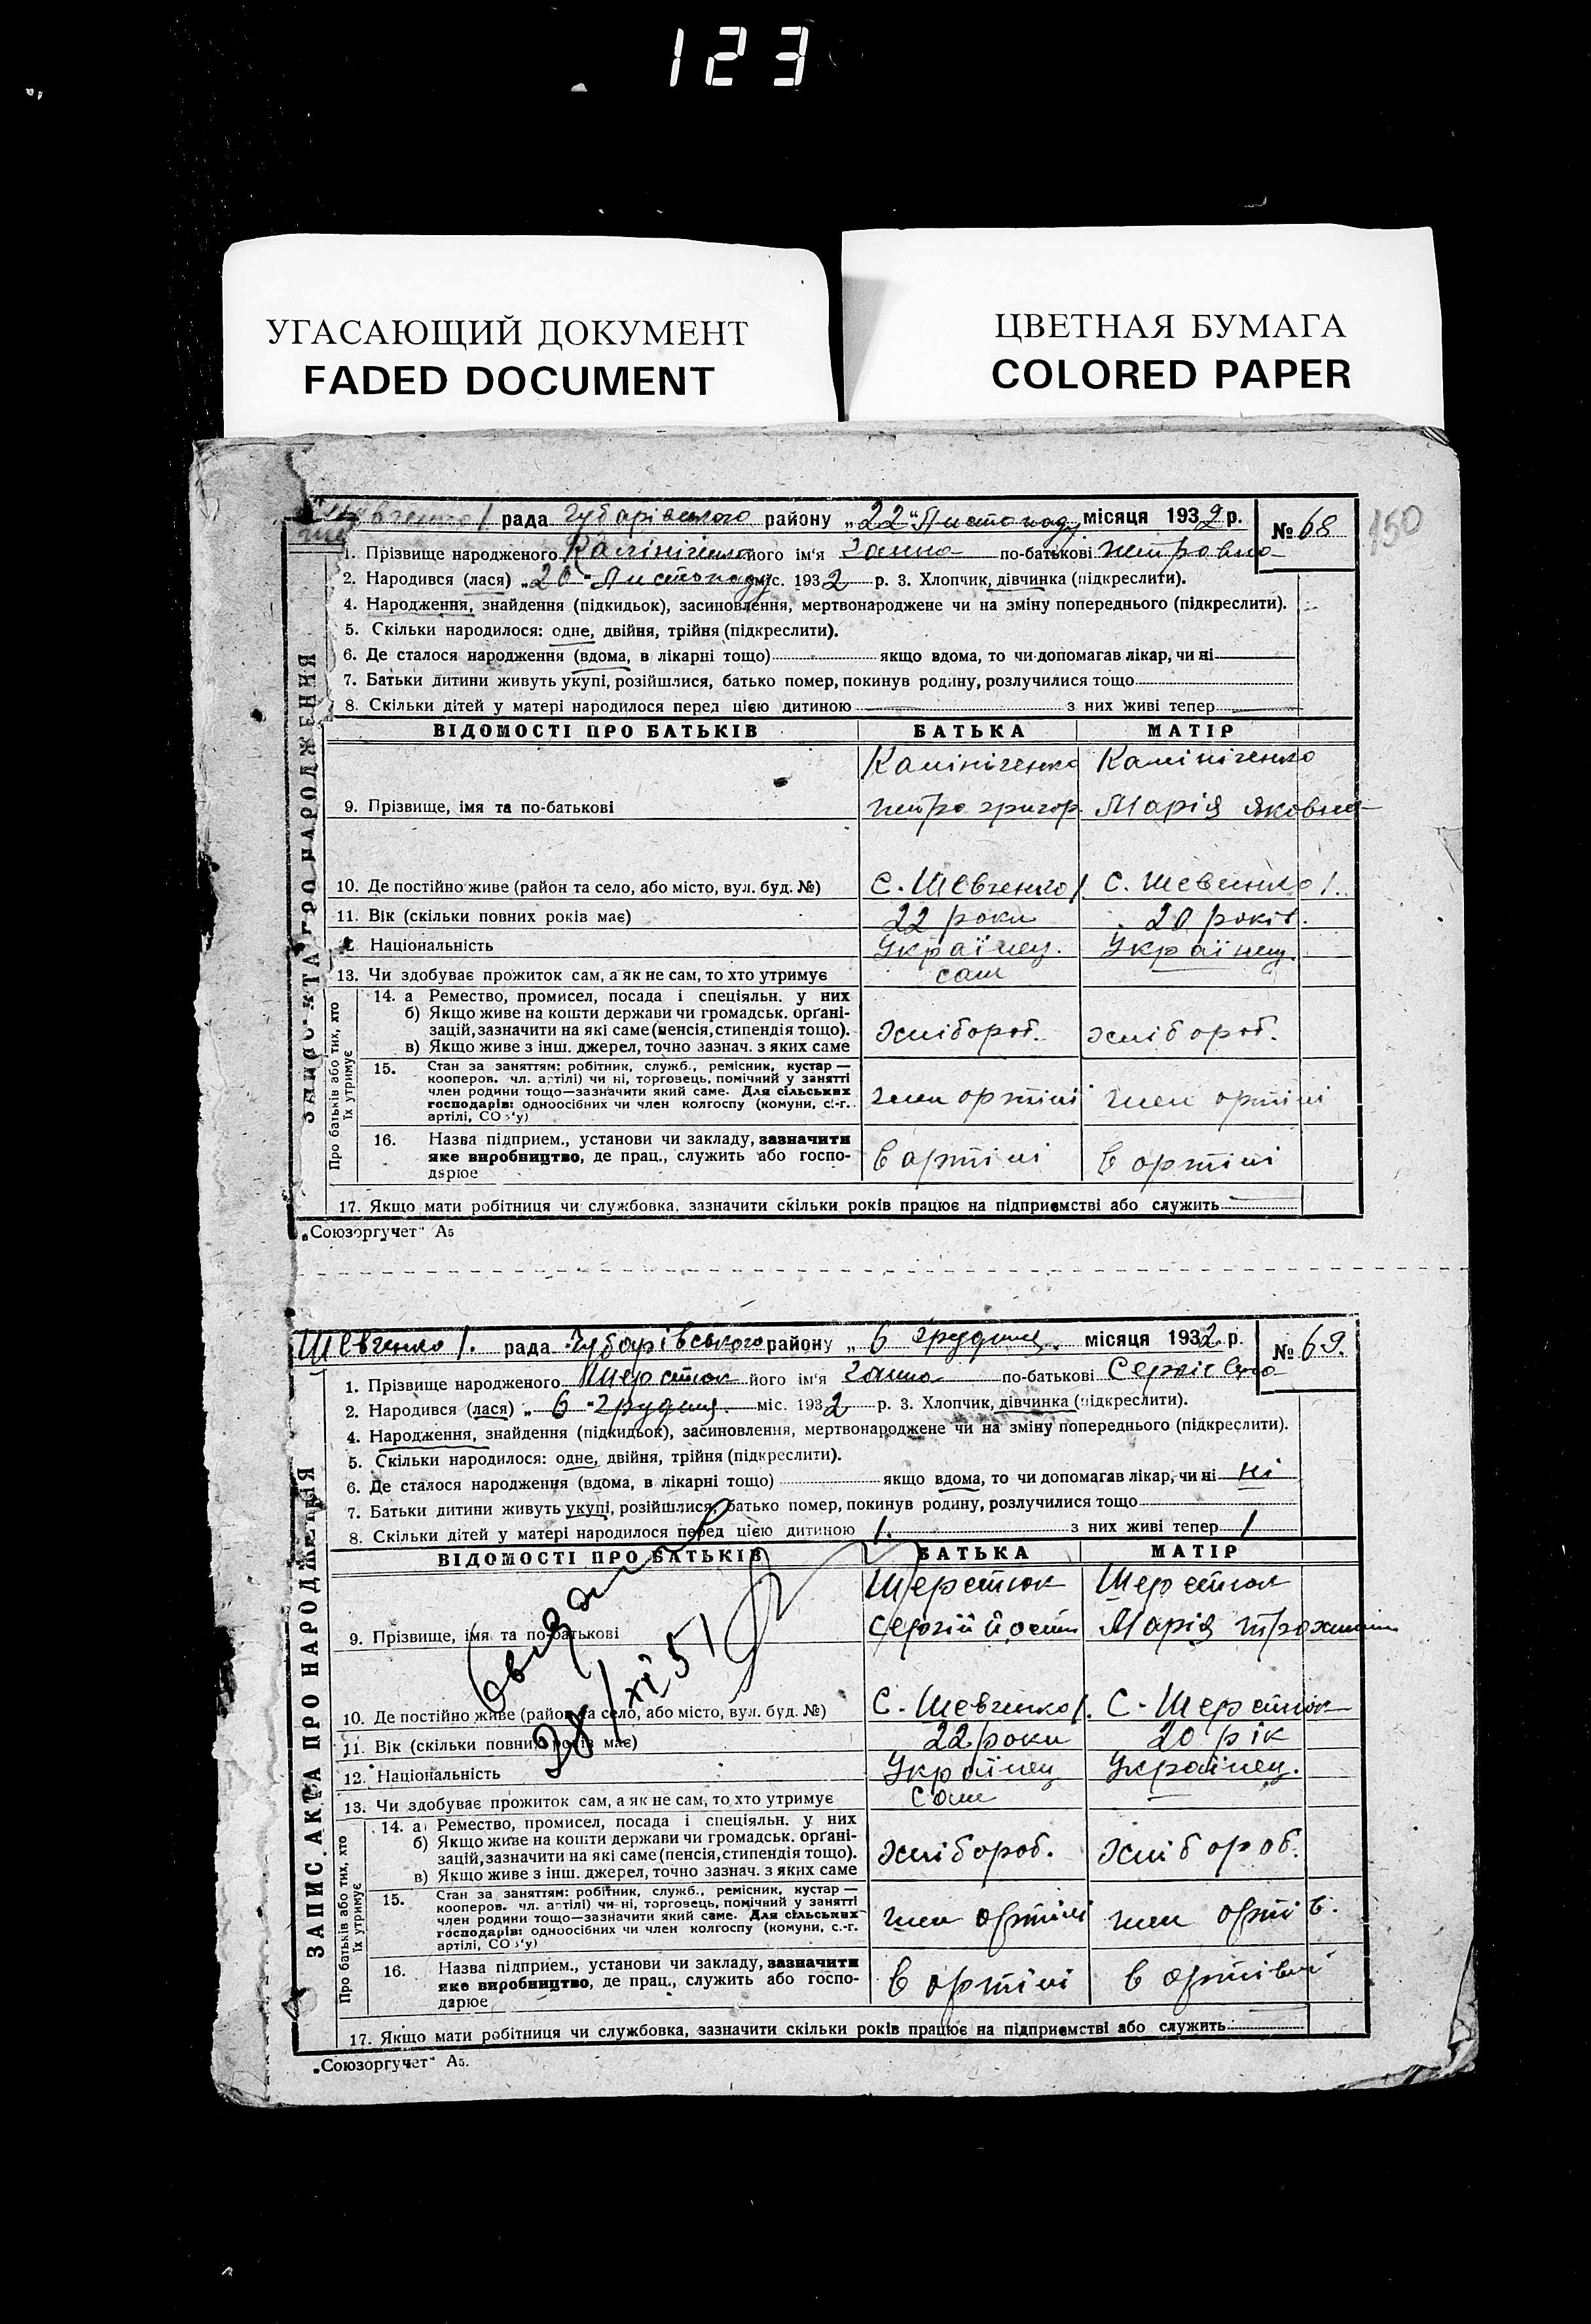 123
УГАСАЮЩИЙ ДОКУМЕНТ
FADED DOCUMENT
ЦВЕТНАЯ БУМАГА
COLORED PAPER
150
ЗАПИС АКТА ПРО НАРОДЖЕННЯ
рада Губарівського району „22“ Листопаду місяця 1932 р. № 68
1. Прізвище народженого Калініченко його ім'я Ганна по-батькові Петровна
2. Народився (лася) „20“ Листопаду міс. 1932 р. 3. Хлопчик, дівчинка (підкреслити).
4. Народження, знайдення (підкидьок), засиновлення, мертвонароджене чи на зміну попереднього (підкреслити).
5. Скільки народилося: одне, двійня, трійня (підкреслити).
6. Де сталося народження (вдома, в лікарні тощо) якщо вдома, то чи допомагав лікар, чи ні
7. Батьки дитини живуть укупі, розійшлися, батько помер, покинув родину, розлучилися тощо
8. Скільки дітей у матері народилося перед цією дитиною з них живі тепер
ВІДОМОСТІ ПРО БАТЬКІВ БАТЬКА МАТІР
Калініченко Калініченко
9. Прізвище, імя та по-батькові Петро григор. Марія Яковна
10. Де постійно живе (район та село, або місто, вул. буд. №) С. Шевченко 1 С. Шевченко 1.
11. Вік (скільки повних років має) 22 роки 20 років.
Національність Українец. Українец.
13. Чи здобуває прожиток сам, а як не сам, то хто утримує сам
Про батьків або тих, хто їх утримує
14. а Ремество, промисел, посада і спеціяльн. у них
б) Якщо живе на кошти держави чи громадськ. орґані-
зацій, зазначити на які саме (пенсія, стипендія тощо). хлібороб. хлібороб.
в) Якщо живе з інш. джерел, точно зазнач. з яких саме
15. Стан за заняттям: робітник, служб., ремісник, кустар —
кооперов. чл. артілі) чи ні, торговець, помічний у занятті
член родини тощо—зазначити який саме. Для сільських
господарів: одноосібних чи член колгоспу (комуни, с.-г. член ортілі член ортілі
артілі, СОЗ'у)
16. Назва підприєм., установи чи закладу, зазначити
яке виробництво, де прац., служить або госпо- в артілі в ортілі
дарює
17. Якщо мати робітниця чи службовка, зазначити скільки років працює на підприємстві або служить
„Союзоргучет“ А5
ЗАПИС АКТА ПРО НАРОДЖЕННЯ
Шевченко 1. рада Губарівського району „6 грудня місяця 1932 р. № 69.
1. Прізвище народженого Шерстюк його ім'я Ганна по-батькові Сергієвна
2. Народився (лася) „6“ грудня. міс. 1932 р. 3. Хлопчик, дівчинка (підкреслити).
4. Народження, знайдення (підкидьок), засиновлення, мертвонароджене чи на зміну попереднього (підкреслити).
5. Скільки народилося: одне, двійня, трійня (підкреслити).
6. Де сталося народження (вдома, в лікарні тощо) якщо вдома, то чи допомагав лікар, чи ні ні
7. Батьки дитини живуть укупі, розійшлися, батько помер, покинув родину, розлучилися тощо
8. Скільки дітей у матері народилося перед цією дитиною 1. з них живі тепер 1
ВІДОМОСТІ ПРО БАТЬКІВ БАТЬКА МАТІР
Шерстюк Шерстюк
9. Прізвище, імя та по-батькові Сергій Марія
28/XI 51
10. Де постійно живе (район та село, або місто, вул. буд. №) С. Шевченко 1. С. Шерстюк
11. Вік (скільки повних років має) 22 роки 20 рік
12. Національність Українец Українец.
13. Чи здобуває прожиток сам, а як не сам, то хто утримує Сам —
Про батьків або тих, хто їх утримує
14. а) Ремество, промисел, посада і спеціяльн. у них
б) Якщо живе на кошти держави чи громадськ. орґані-
зацій, зазначити на які саме (пенсія, стипендія тощо). хлібороб. хлібороб.
в) Якщо живе з інш. джерел, точно зазнач. з яких саме
15. Стан за заняттям: робітник, служб., ремісник, кустар —
кооперов. чл. артілі) чи ні, торговець, помічний у занятті
член родини тощо—зазначити який саме. Для сільських член ортілі член
господарів: одноосібних чи член колгоспу (комуни, с.-г.
артілі, СОЗ'у)
16. Назва підприєм., установи чи закладу, зазначити
яке виробництво, де прац., служить або госпо- в ортілі в
дарює
17. Якщо мати робітниця чи службовка, зазначити скільки років працює на підприємстві або служить
„Союзоргучет“ А5.